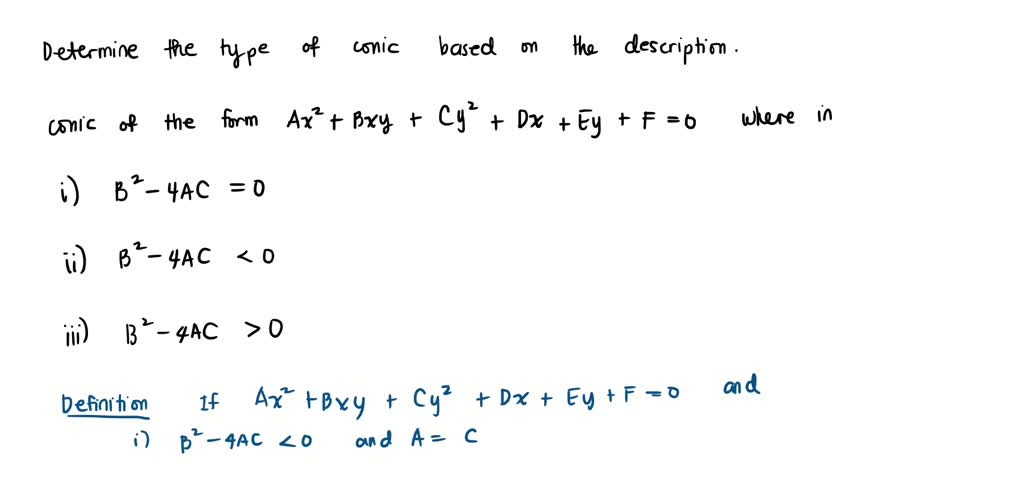 Determine the type of conic based on the description.
conic of the form Ax² + Bxy + Cy² + Dx + Ey + F = 0 where in
i) B² - 4AC = 0
ii) B² - 4AC < 0
iii) B² - 4AC > 0
Definition If Ax² + Bxy + Cy² + Dx + Ey + F = 0 and
i) B² - 4AC < 0 and A = C